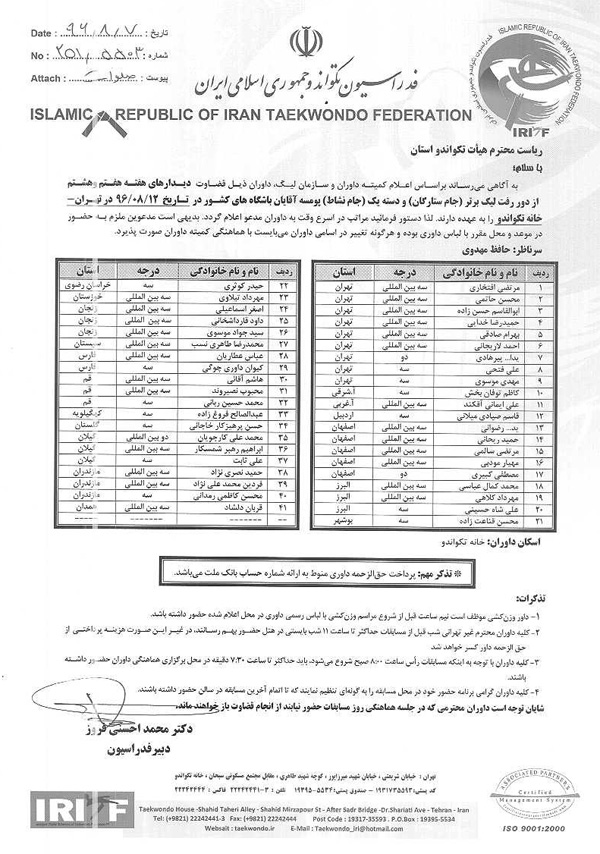 تاریخ: ۹۶،۸،۷
Date :
شماره: ۲۵۱/۵۵۰۳
No :
پیوست:
Attach :
ISLAMIC REPUBLIC OF IRAN TAEKWONDO FEDERATION
IRITF
فدراسیون تکواندو جمهوری اسلامی ایران
ISLAMIC REPUBLIC OF IRAN TAEKWONDO FEDERATION
ریاست محترم هیأت تکواندو استان
با سلام؛
به آگاهی می‌رساند براساس اعلام کمیته داوران و سازمان لیگ، داوران ذیل قضاوت دیدارهای هفته هفتم وهشتم
از دور رفت لیگ برتر (جام ستارگان) و دسته یک (جام نشاط) پومسه آقایان باشگاه های کشور در تاریخ ۹۶/۰۸/۱۲ در تهران-
خانه تکواندو را به عهده دارند. لذا دستور فرمائید مراتب در اسرع وقت به داوران مدعو اعلام گردد. بدیهی است مدعوین ملزم به حضور
در موعد و محل مقرر با لباس داوری بوده و هرگونه تغییر در اسامی داوران می‌بایست با هماهنگی کمیته داوران صورت پذیرد.
سرناظر: حافظ مهدوی
ردیف نام و نام خانوادگی درجه استان
۱ مرتضی افتخاری سه بین المللی تهران
۲ محسن حاتمی سه بین المللی تهران
۳ ابوالقاسم حسن زاده سه بین المللی تهران
۴ حمیدرضا خدایی سه بین المللی تهران
۵ بهرام صادقی سه بین المللی تهران
۶ احمد لاریجانی سه بین المللی تهران
۷ یدا... پیرهادی دو تهران
۸ علی فتحی سه تهران
۹ مهدی موسوی سه تهران
۱۰ کاظم توفان بخش سه آ.شرقی
۱۱ علی ایمانی آفکند سه بین المللی آ.غربی
۱۲ قاسم صیادی میلانی سه اردبیل
۱۳ ید... رضوانی سه بین المللی اصفهان
۱۴ حمید ریحانی سه بین المللی اصفهان
۱۵ مرتضی سالمی سه بین المللی اصفهان
۱۶ مهیار مودبی سه بین المللی اصفهان
۱۷ مصطفی کبیری دو اصفهان
۱۸ محمد کمال عباسی سه بین المللی البرز
۱۹ مهرداد کلاهی سه بین المللی البرز
۲۰ علی شاه حسینی سه البرز
۲۱ محسن قناعت زاده سه بوشهر
ردیف نام و نام خانوادگی درجه استان
۲۲ حیدر کوثری سه خراسان رضوی
۲۳ مهرداد نیلاوی سه بین المللی خوزستان
۲۴ اصغر اسماعیلی سه بین المللی زنجان
۲۵ داود قارداشخانی سه بین المللی زنجان
۲۶ سید جواد موسوی سه بین المللی زنجان
۲۷ محمدرضا طاهری نسب سه بین المللی سیستان
۲۸ عباس عطاریان سه بین المللی فارس
۲۹ کیوان داوری چوگی سه فارس
۳۰ هاشم آقائی سه بین المللی قم
۳۱ محبوب نصیروند سه بین المللی قم
۳۲ محمد حسین ربانی سه قم
۳۳ عبدالصالح فروغ زاده سه کهگیلویه
۳۴ حسن پرهیزکار حاجاتی سه گلستان
۳۵ محمد علی کارجویان دو بین المللی گیلان
۳۶ ابراهیم رهبر شمسکار سه بین المللی گیلان
۳۷ علی ثابت سه گیلان
۳۸ حمید نصری نژاد سه بین المللی مازندران
۳۹ فردین محمد علی نژاد سه بین المللی مازندران
۴۰ محسن کاظمی رمدانی سه مازندران
۴۱ قربان دلشاد سه بین المللی همدان
اسکان داوران: خانه تکواندو
* تذکر مهم: پرداخت حق‌الزحمه داوری منوط به ارائه شماره حساب بانک ملت می‌باشد.
تذکرات:
۱- داور وزن‌کشی موظف است نیم ساعت قبل از شروع مراسم وزن‌کشی با لباس رسمی داوری در محل اعلام شده حضور داشته باشد.
۲- کلیه داوران محترم غیر تهرانی شب قبل از مسابقات حداکثر تا ساعت ۱۱ شب بایستی در هتل حضور بهم رسانند، در غیر این صورت هزینه پرداختی از
حق الزحمه داور کسر خواهد شد
۳- کلیه داوران با توجه به اینکه مسابقات رأس ساعت ۸:۰۰ صبح شروع می‌شود، باید حداکثر تا ساعت ۷:۳۰ دقیقه در محل برگزاری هماهنگی داوران حضور داشته
باشند.
۴- کلیه داوران گرامی برنامه حضور خود در محل مسابقه را به گونه‌ای تنظیم نمایند که تا اتمام آخرین مسابقه در سالن حضور داشته باشند.
شایان توجه است داوران محترمی که در جلسه هماهنگی روز مسابقات حضور نیابند از انجام قضاوت باز خواهند ماند.
دکتر محمد احسنی فروز
دبیر فدراسیون
تهران: خیابان شریعتی، خیابان شهید میرزاپور، کوچه شهید طاهری، مقابل مجتمع مسکونی سبحان، خانه تکواندو
کدپستی: ۱۹۳۱۷۳۵۵۹۳ - صندوق پستی: ۵۵۳۴-۱۹۳۹۵ تلفن: ۳-۲۲۲۴۲۴۴۱ فاکس: ۲۲۲۴۲۴۴۴
Taekwondo House -Shahid Taheri Alley - Shahid Mirzapour St - After Sadr Bridge -Dr.Shariati Ave - Tehran - Iran
Tel: (+9821) 22242441-3 Fax: (+9821) 22242444 Post Code : 19317-35593 . P.O.Box : 19395-5534
Websait : taekwondo.ir E-Mail : Taekwondo_iri@hotmail.com
IRITF
ASSOCIATED PARTNERS
Certified
Management System
ISO 9001:2000